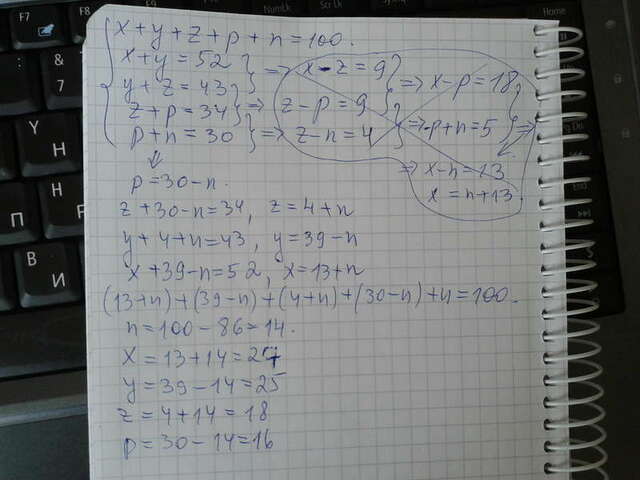 F7
F8
NumLk
Scr Lk
Home
&
7
Y
Н
П
Р
В
И
x+y+z+p+n=100.
x+y=52 } => x-z=9 } => x-p=18
y+z=43
z+p=34 } => z-p=9
p+n=30 } => z-n=4 => -p+n=5 } =>
=> x-n=13
x=n+13
p=30-n.
z+30-n=34, z=4+n
y+4+n=43, y=39-n
x+39-n=52, x=13+n
(13+n)+(39-n)+(4+n)+(30-n)+n=100.
n=100-86=14.
x=13+14=27
y=39-14=25
z=4+14=18
p=30-14=16